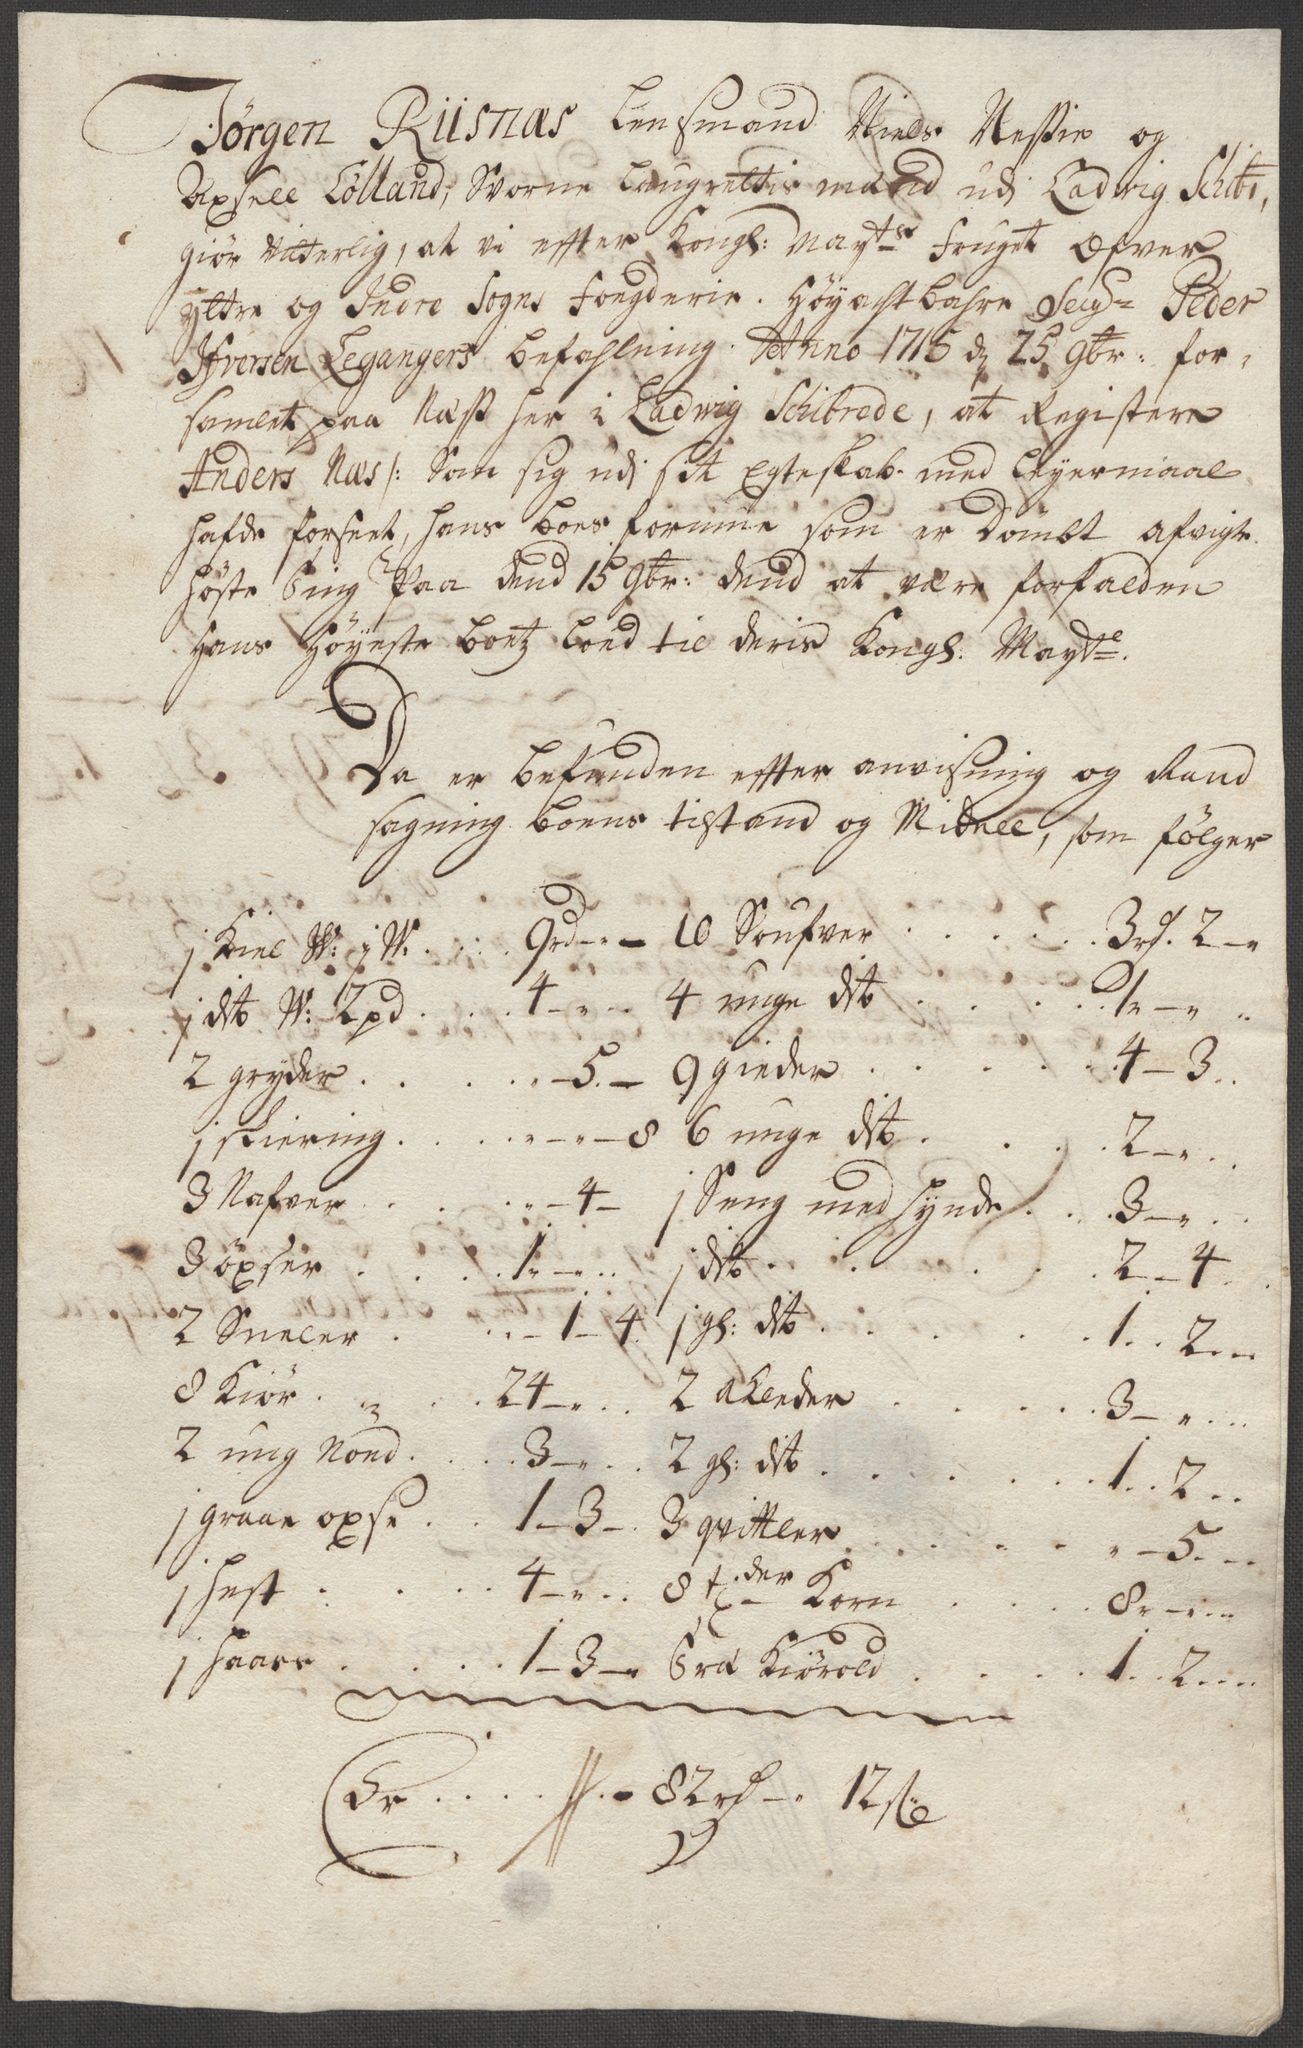 Jörgen Riisnæs lensmand Niels Nessie og
Axsell Lölland, Svorne laugrettis mænd udj Ladwig Schibr,
giör vitterlig, at vi effter Kongl: Mayts Fouget Ofver
Yttre og Indre Sogns Fougderie. Höyachtbahre Seigr Peder
Ifversen Legangers befahlning. Anno 1715 d 25 9br: for-
samlet paa Næss her i Ladwig Schibrede, at Registere
Anders Næs /: Som sig udj sit Egteskab med leyermaal
hafde forseet, hans boes formue som er Dömbt afvigte
höste Ting Paa dend 15 9br: dend at være forfalden
hans Höyeste boetz lood til deris Kongl: Mayte.
Da er befunden effter anvisning og Rand
sagning boens tilstand og Midell, som fölger
j Kiel W: j W: . . . 9rd - 10 Soufver . . . . . 3rd. 2 -
j dito W: 2pd . . . 4 - 4 unge dito . . . . 1 -
2 gryder . . . . . - 5 - 9 gieder . . . . . 4 - 3 . .
j skiering . . . . - - 8 6 unge dito . . . . 2 - . .
3 Nafver . . . . - 4 - j Seng med hynde . . . 3 - . .
3 öxser . . . . 1 - . . j dito . . . . . 2 - 4 . .
2 Sneler . . . - 1 - 4 j gl: dito . . . . . 1 . . 2 . . .
8 Kiör . . . . 24 - . . 2 aKleder . . . . . 3 - . . .
2 ung Nöed . . . . 3 - . . 2 gl: dito . . . . . 1 . . 2 . .
j graae oxse . . 1 - 3 - . 3 qvittler . . . . . - 5 . . .
j hest . . . . 4 - . . 8 tder Korn . . . . 8 - . . .
j haare . . . . 1 - 3 - Træ Kiörold . . . . 1 . . 2 . . . .
Er . . . . . - 82rd - 12s